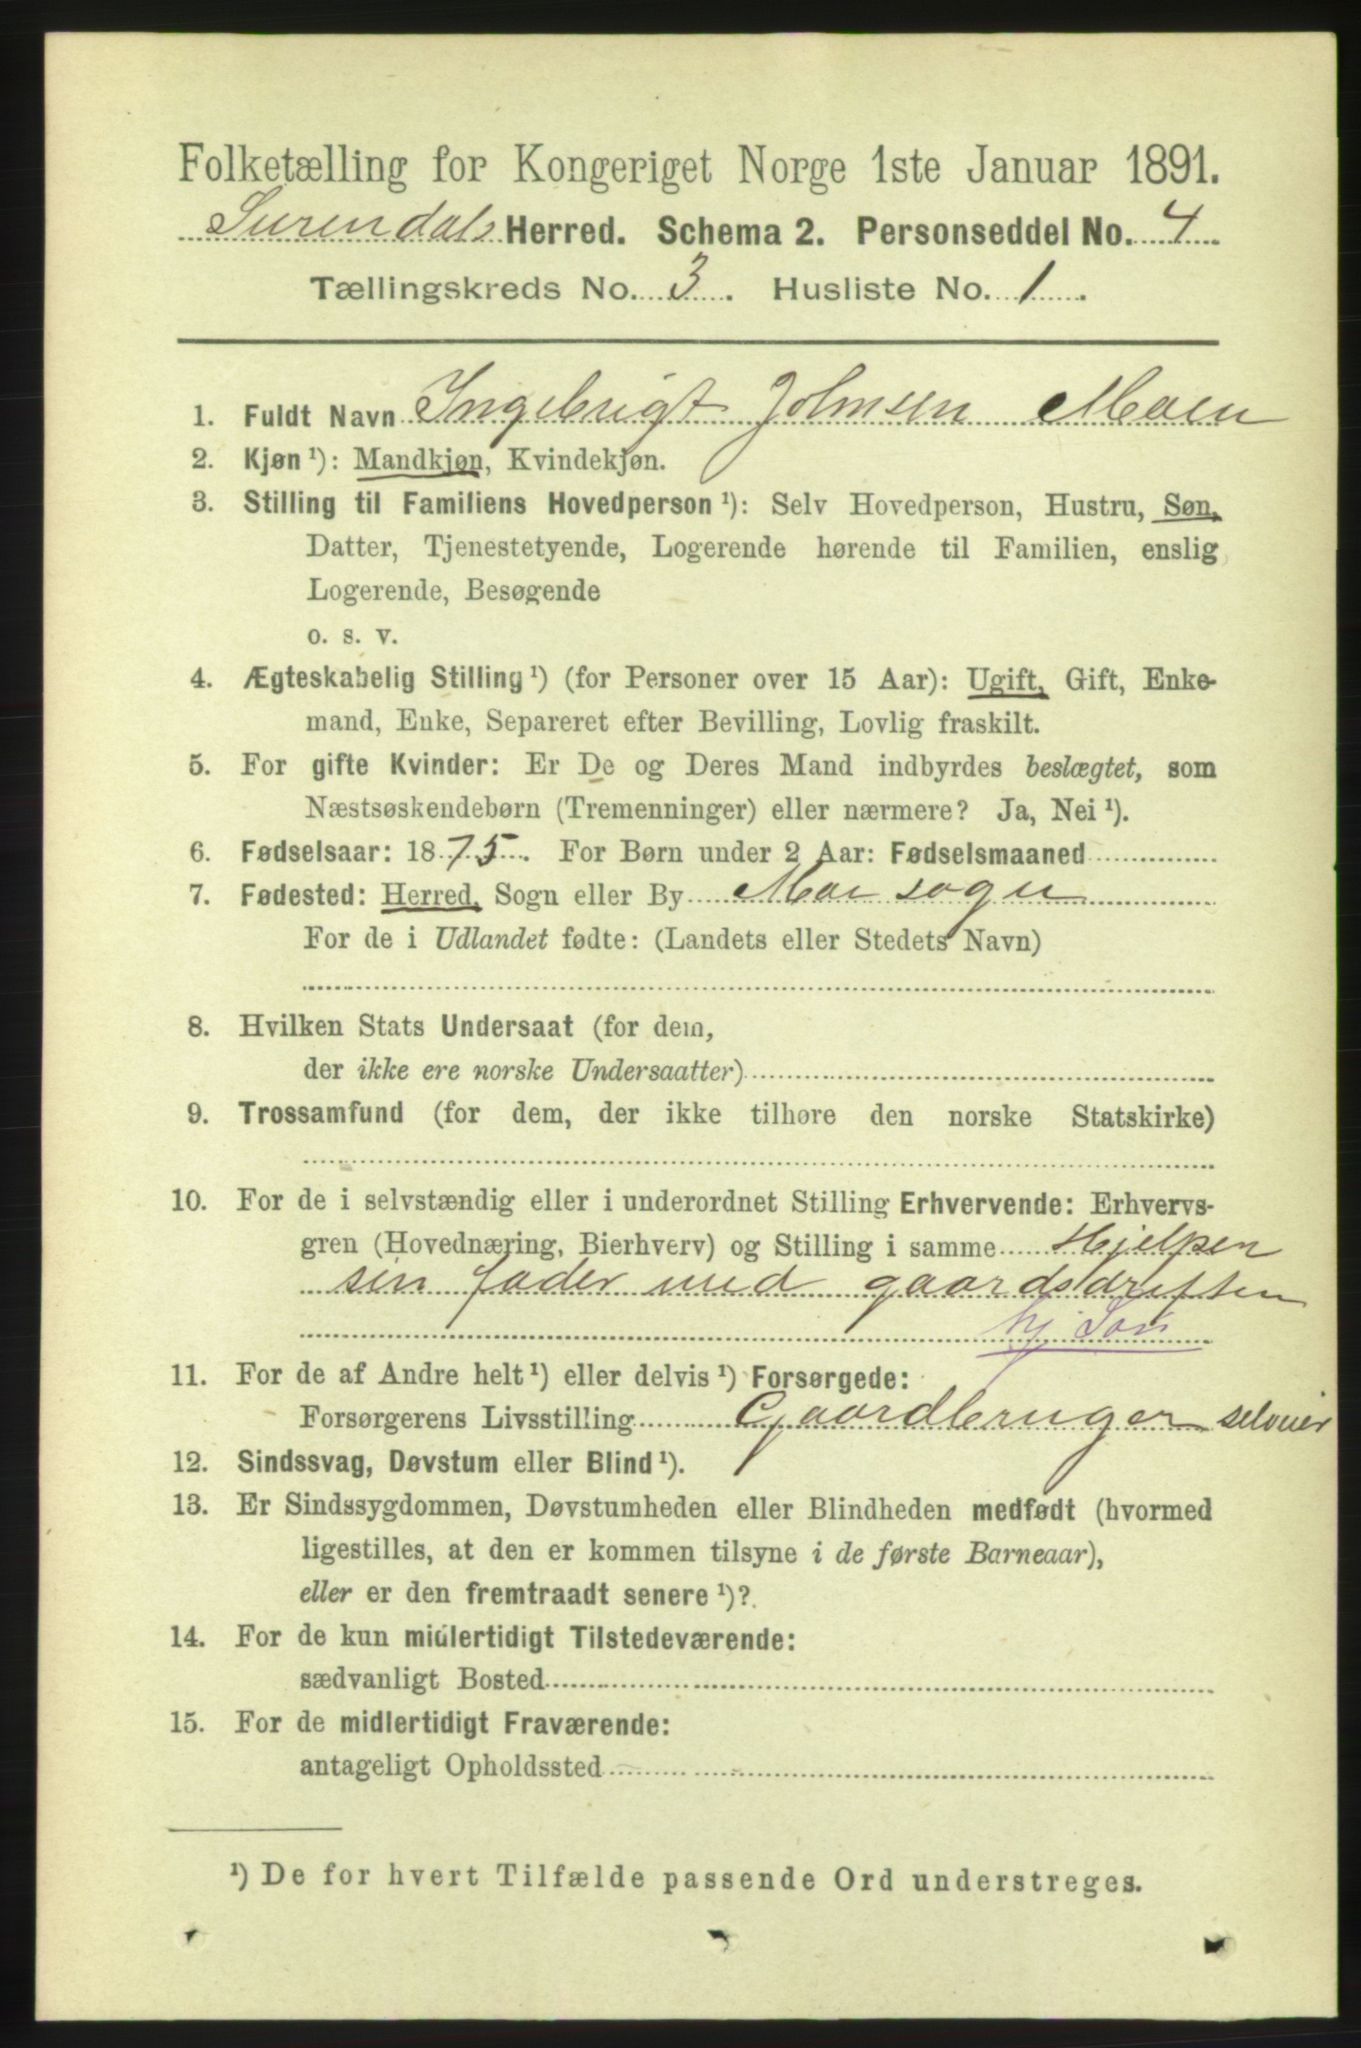 Folketælling for Kongeriget Norge 1ste Januar 1891.
Surendals Herred. Schema 2. Personseddel No. 4
Tællingskreds No. 3. Husliste No. 1.
1. Fuldt Navn Ingebrigt Johnsen Moen
2. Kjøn ¹): Mandkjøn, Kvindekjøn.
3. Stilling til Familiens Hovedperson ¹): Selv Hovedperson, Hustru, Søn,
Datter, Tjenestetyende, Logerende hørende til Familien, enslig
Logerende, Besøgende
o. s. v.
4. Ægteskabelig Stilling ¹) (for Personer over 15 Aar): Ugift, Gift, Enke-
mand, Enke, Separeret efter Bevilling, Lovlig fraskilt.
5. For gifte Kvinder: Er De og Deres Mand indbyrdes beslægtet, som
Næstsøskendebørn (Tremenninger) eller nærmere? Ja, Nei ¹).
6. Fødselsaar: 1875. For Børn under 2 Aar: Fødselsmaaned
7. Fødested: Herred, Sogn eller By Moe sogn
For de i Udlandet fødte: (Landets eller Stedets Navn)
8. Hvilken Stats Undersaat (for dem,
der ikke ere norske Undersaatter)
9. Trossamfund (for dem, der ikke tilhøre den norske Statskirke)
10. For de i selvstændig eller i underordnet Stilling Erhvervende: Erhvervs-
gren (Hovednæring, Bierhverv) og Stilling i samme Hjelpen
sin fader med gaardsdriften
hj Søn
11. For de af Andre helt ¹) eller delvis ¹) Forsørgede:
Forsørgerens Livsstilling Gaardbruger selveier
12. Sindssvag, Døvstum eller Blind ¹).
13. Er Sindssygdommen, Døvstumheden eller Blindheden medfødt (hvormed
ligestilles, at den er kommen tilsyne i de første Barneaar),
eller er den fremtraadt senere ¹)?
14. For de kun midlertidigt Tilstedeværende:
sædvanligt Bosted
15. For de midlertidigt Fraværende:
antageligt Opholdssted
¹) De for hvert Tilfælde passende Ord understreges.